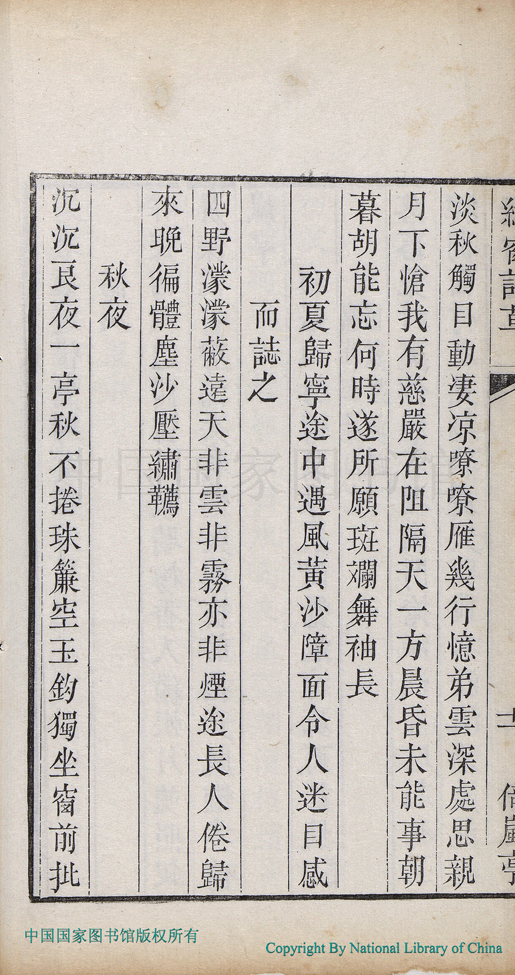 淡秋觸目動凄凉嘹嘹雁幾行憶弟雲深處思親
月下愴我有慈嚴在阻隔天一方晨昏未能事朝
暮胡能忘何時遂所願斑斕舞袖長
初夏歸寧途中遇風黃沙障面令人迷目感
而誌之
四野濛濛蔽遠天非雲非霧亦非煙途長人倦歸
來晚徧體塵沙壓繡韉
秋夜
沉沉良夜一亭秋不捲珠簾空玉鈎獨坐窗前批
中国国家图书馆
中国国家图书馆版权所有
Copyright By National Library of China